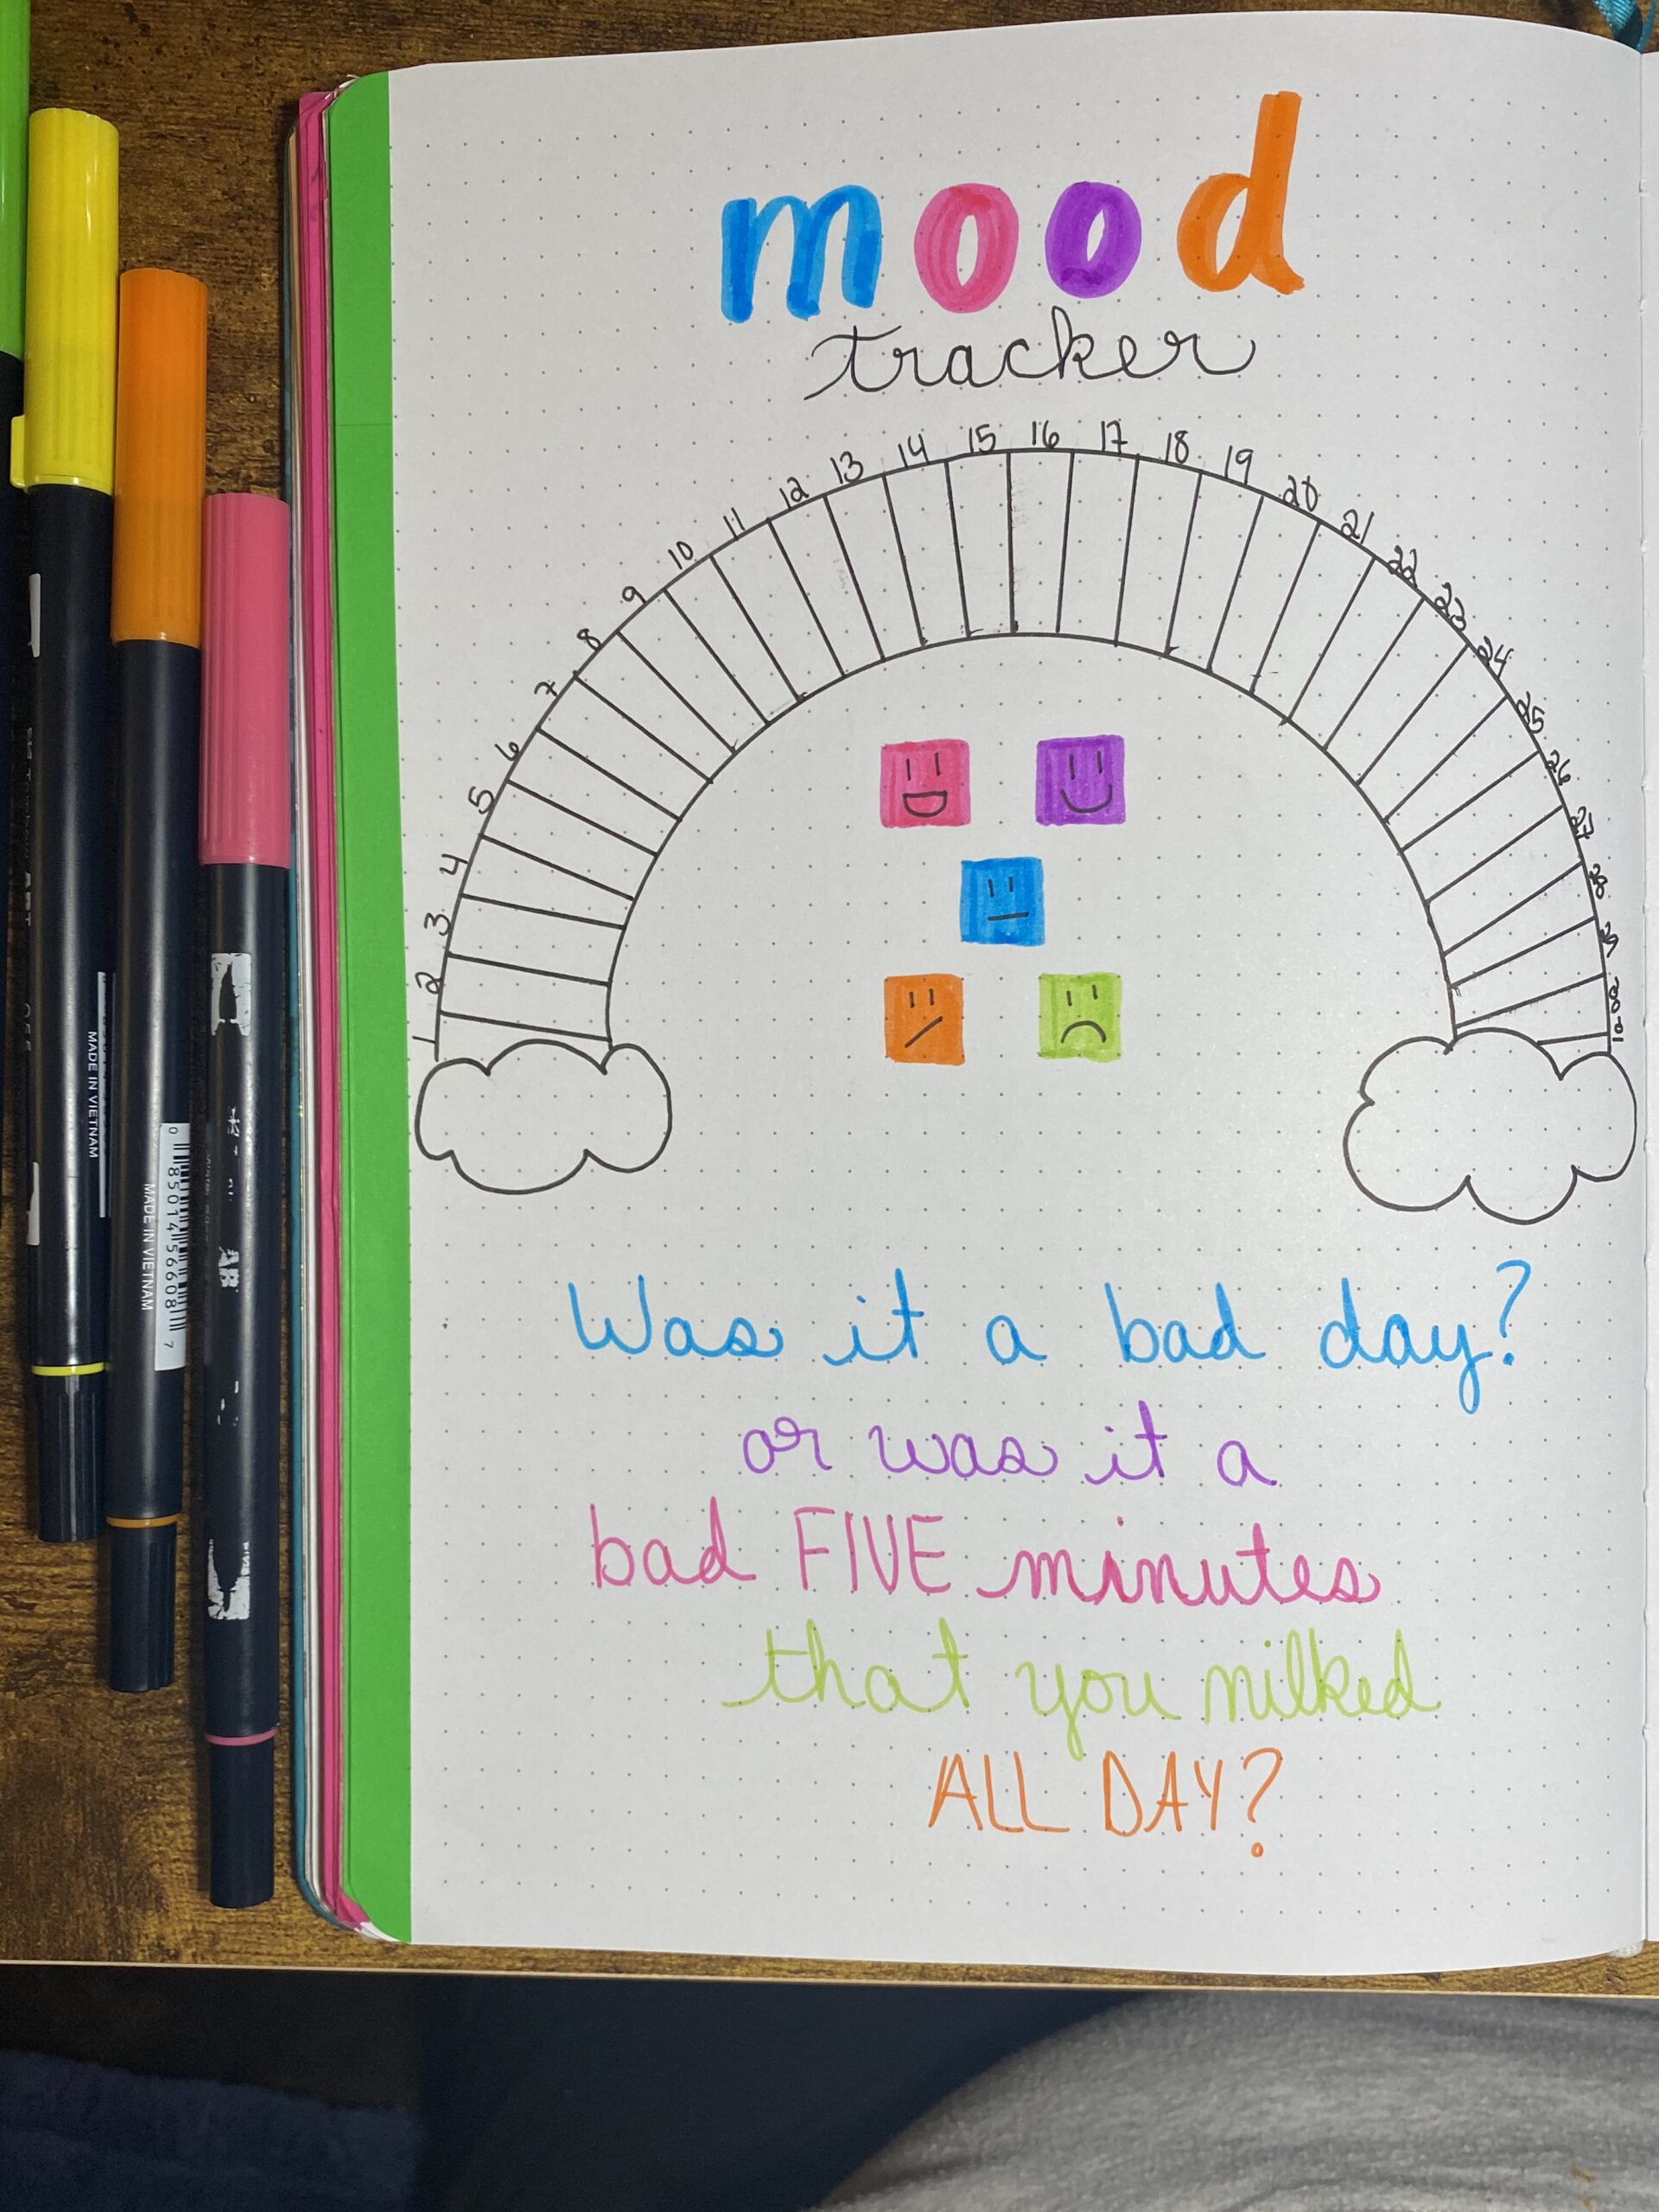 mood
tracker
1 2 3 4 5 6 7 8 9 10 11 12 13 14 15 16 17 18 19 20 21 22 23 24 25 26 27 28 29 30 31
Was it a bad day?
or was it a
bad FIVE minutes
that you milked
ALL DAY?
MADE IN VIETNAM
MADE IN VIETNAM
0 85014 56608 7
AB